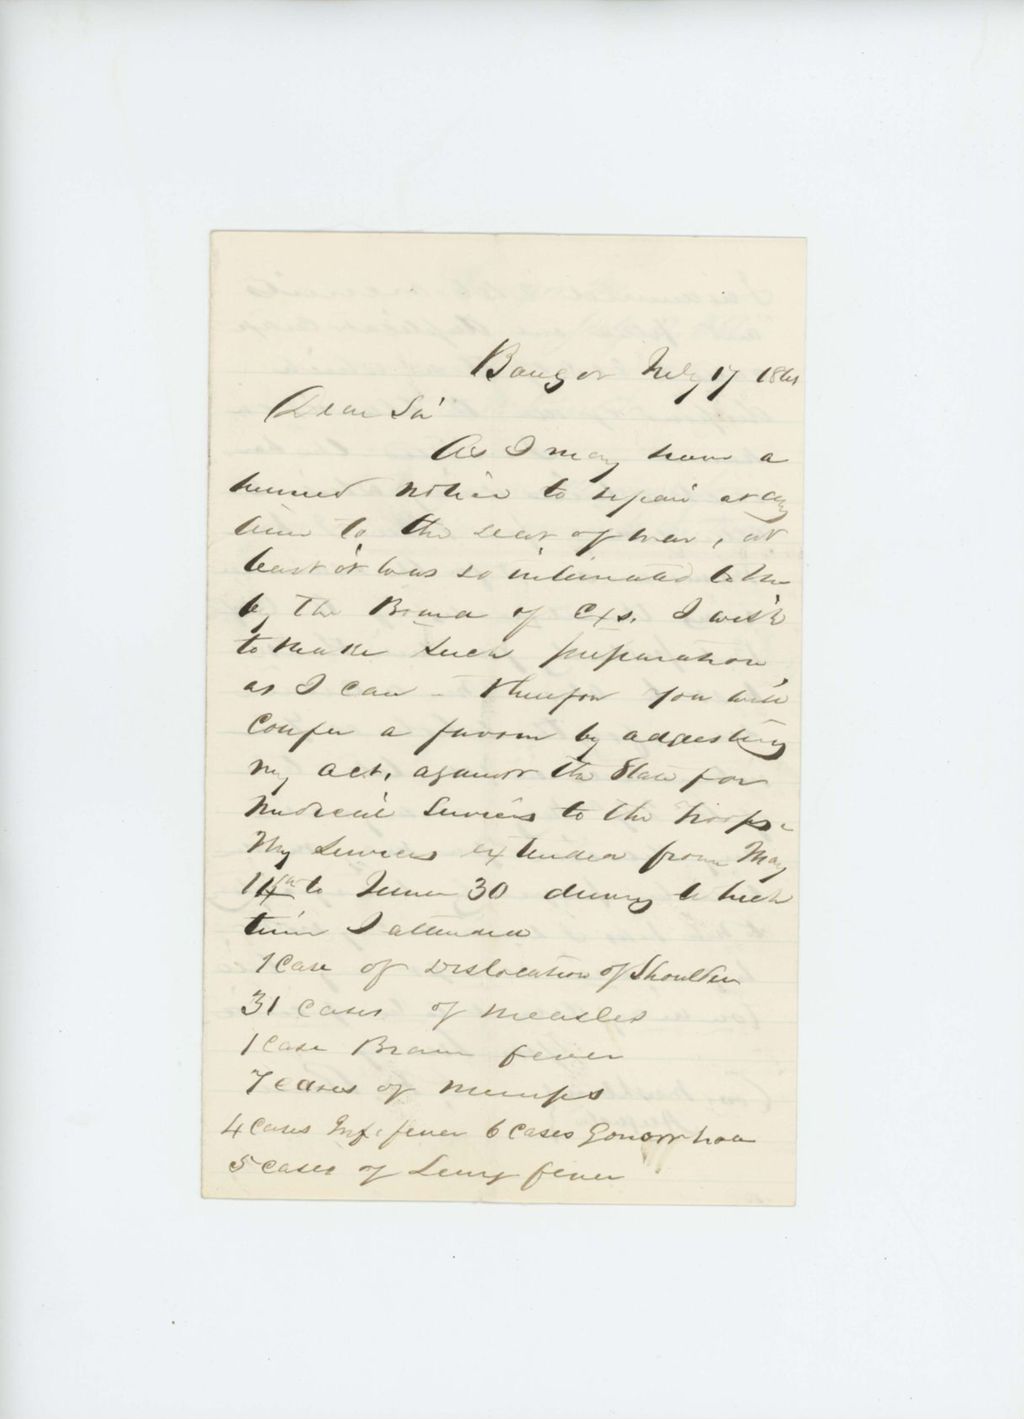 Bangor July 17 1861
Dear Sir
As I may have a
hurried notice to repair at any
time to the seat of war, at
least it was so intimated to me
by The Board of Exs. I wish
to make such preparation
as I can - therefore you will
confer a favor by adjusting
my act. against the State for
Medical Services to the troops -
My services extended from May
14th to June 30 during which
time I attended
1 Case of Dislocation of Shoulder
31 cases of measles
1 Case Brain fever
7 cases of mumps
4 Cases Inf. fever 6 Cases Gonorrhoea
5 cases of Lung fever